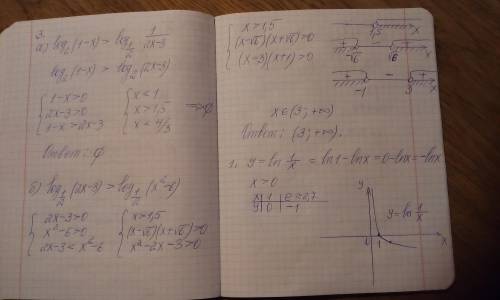 3.
а) log₂(1-x) > log_{1/2} 1/(2x-3)
log₂(1-x) > log₂(2x-3)
{ 1-x>0 { x<1
2x-3>0 x>1,5 => ∅
1-x>2x-3 x<4/3
Ответ: ∅
б) log_{1/2}(2x-3) > log_{1/2}(x²-6)
{ 2x-3>0 { x>1,5
x²-6>0 (x-√6)(x+√6)>0
2x-3<x²-6 x²-2x-3>0
{ x>1,5
(x-√6)(x+√6)>0
(x-3)(x+1)>0
1,5 x
+ - + -√6 √6 x
+ - + -1 3 x
x∈(3; +∞)
Ответ: (3; +∞).
1. y = ln 1/x = ln1-lnx=0-lnx=-lnx
x>0
x 1 e≈2,7
y 0 -1
y
y=ln 1/x
0 1 x